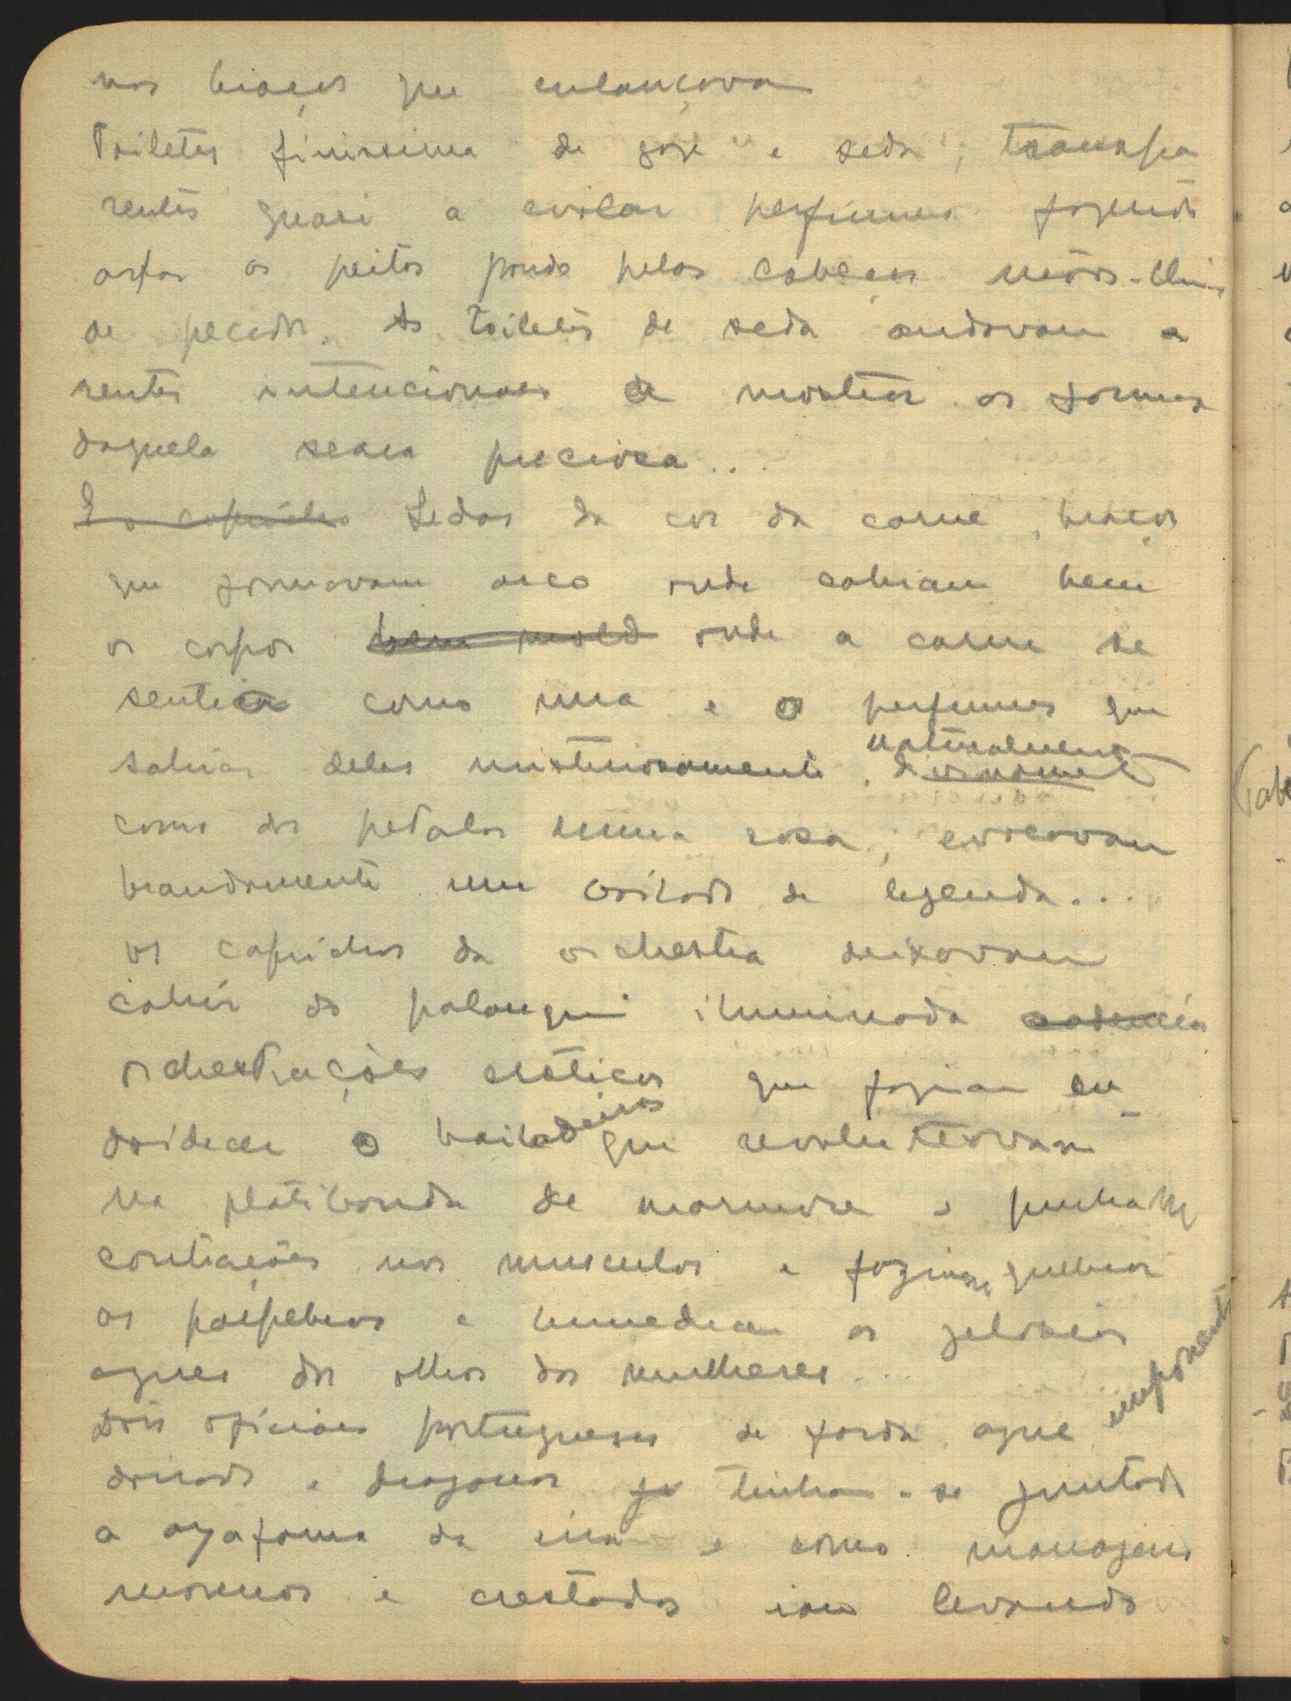 nos braços que enlançava
Toiletes finissima de gaze e seda, transpa
rentes quasi a evolar perfumes fazendo
arfar os peitos pondo pelas cabeças
de pecado. As toiletes de seda andavam a
rentes intencionaes a mostrar as formas
daquela seara preciosa...
Sedas da cor da carne, braços
que formavam arco onde cabiam bem
os corpos bem mold onde a carne se
sentia como uma e o perfumes que
sahia deles misteriosamente naturalmente
como das petalas numa rosa, evocavam
brandamente um bailado de legenda...
os caprichos da orchestra deixavam
cahir do palanque iluminado cadencias
orchestrações exoticas que faziam en-
doidecer o bailadeiras que revoluteavam
na platibanda de marmore e punham
contrações nos musculos e faziam quebrar
as palpebras e humedecer os
agues dos olhos das mulheres...
Dois oficiaes portugueses de farda azue imponente
doirado e dragonas tinham-se juntado
a azafama da e como
morenos e crestados iam levando